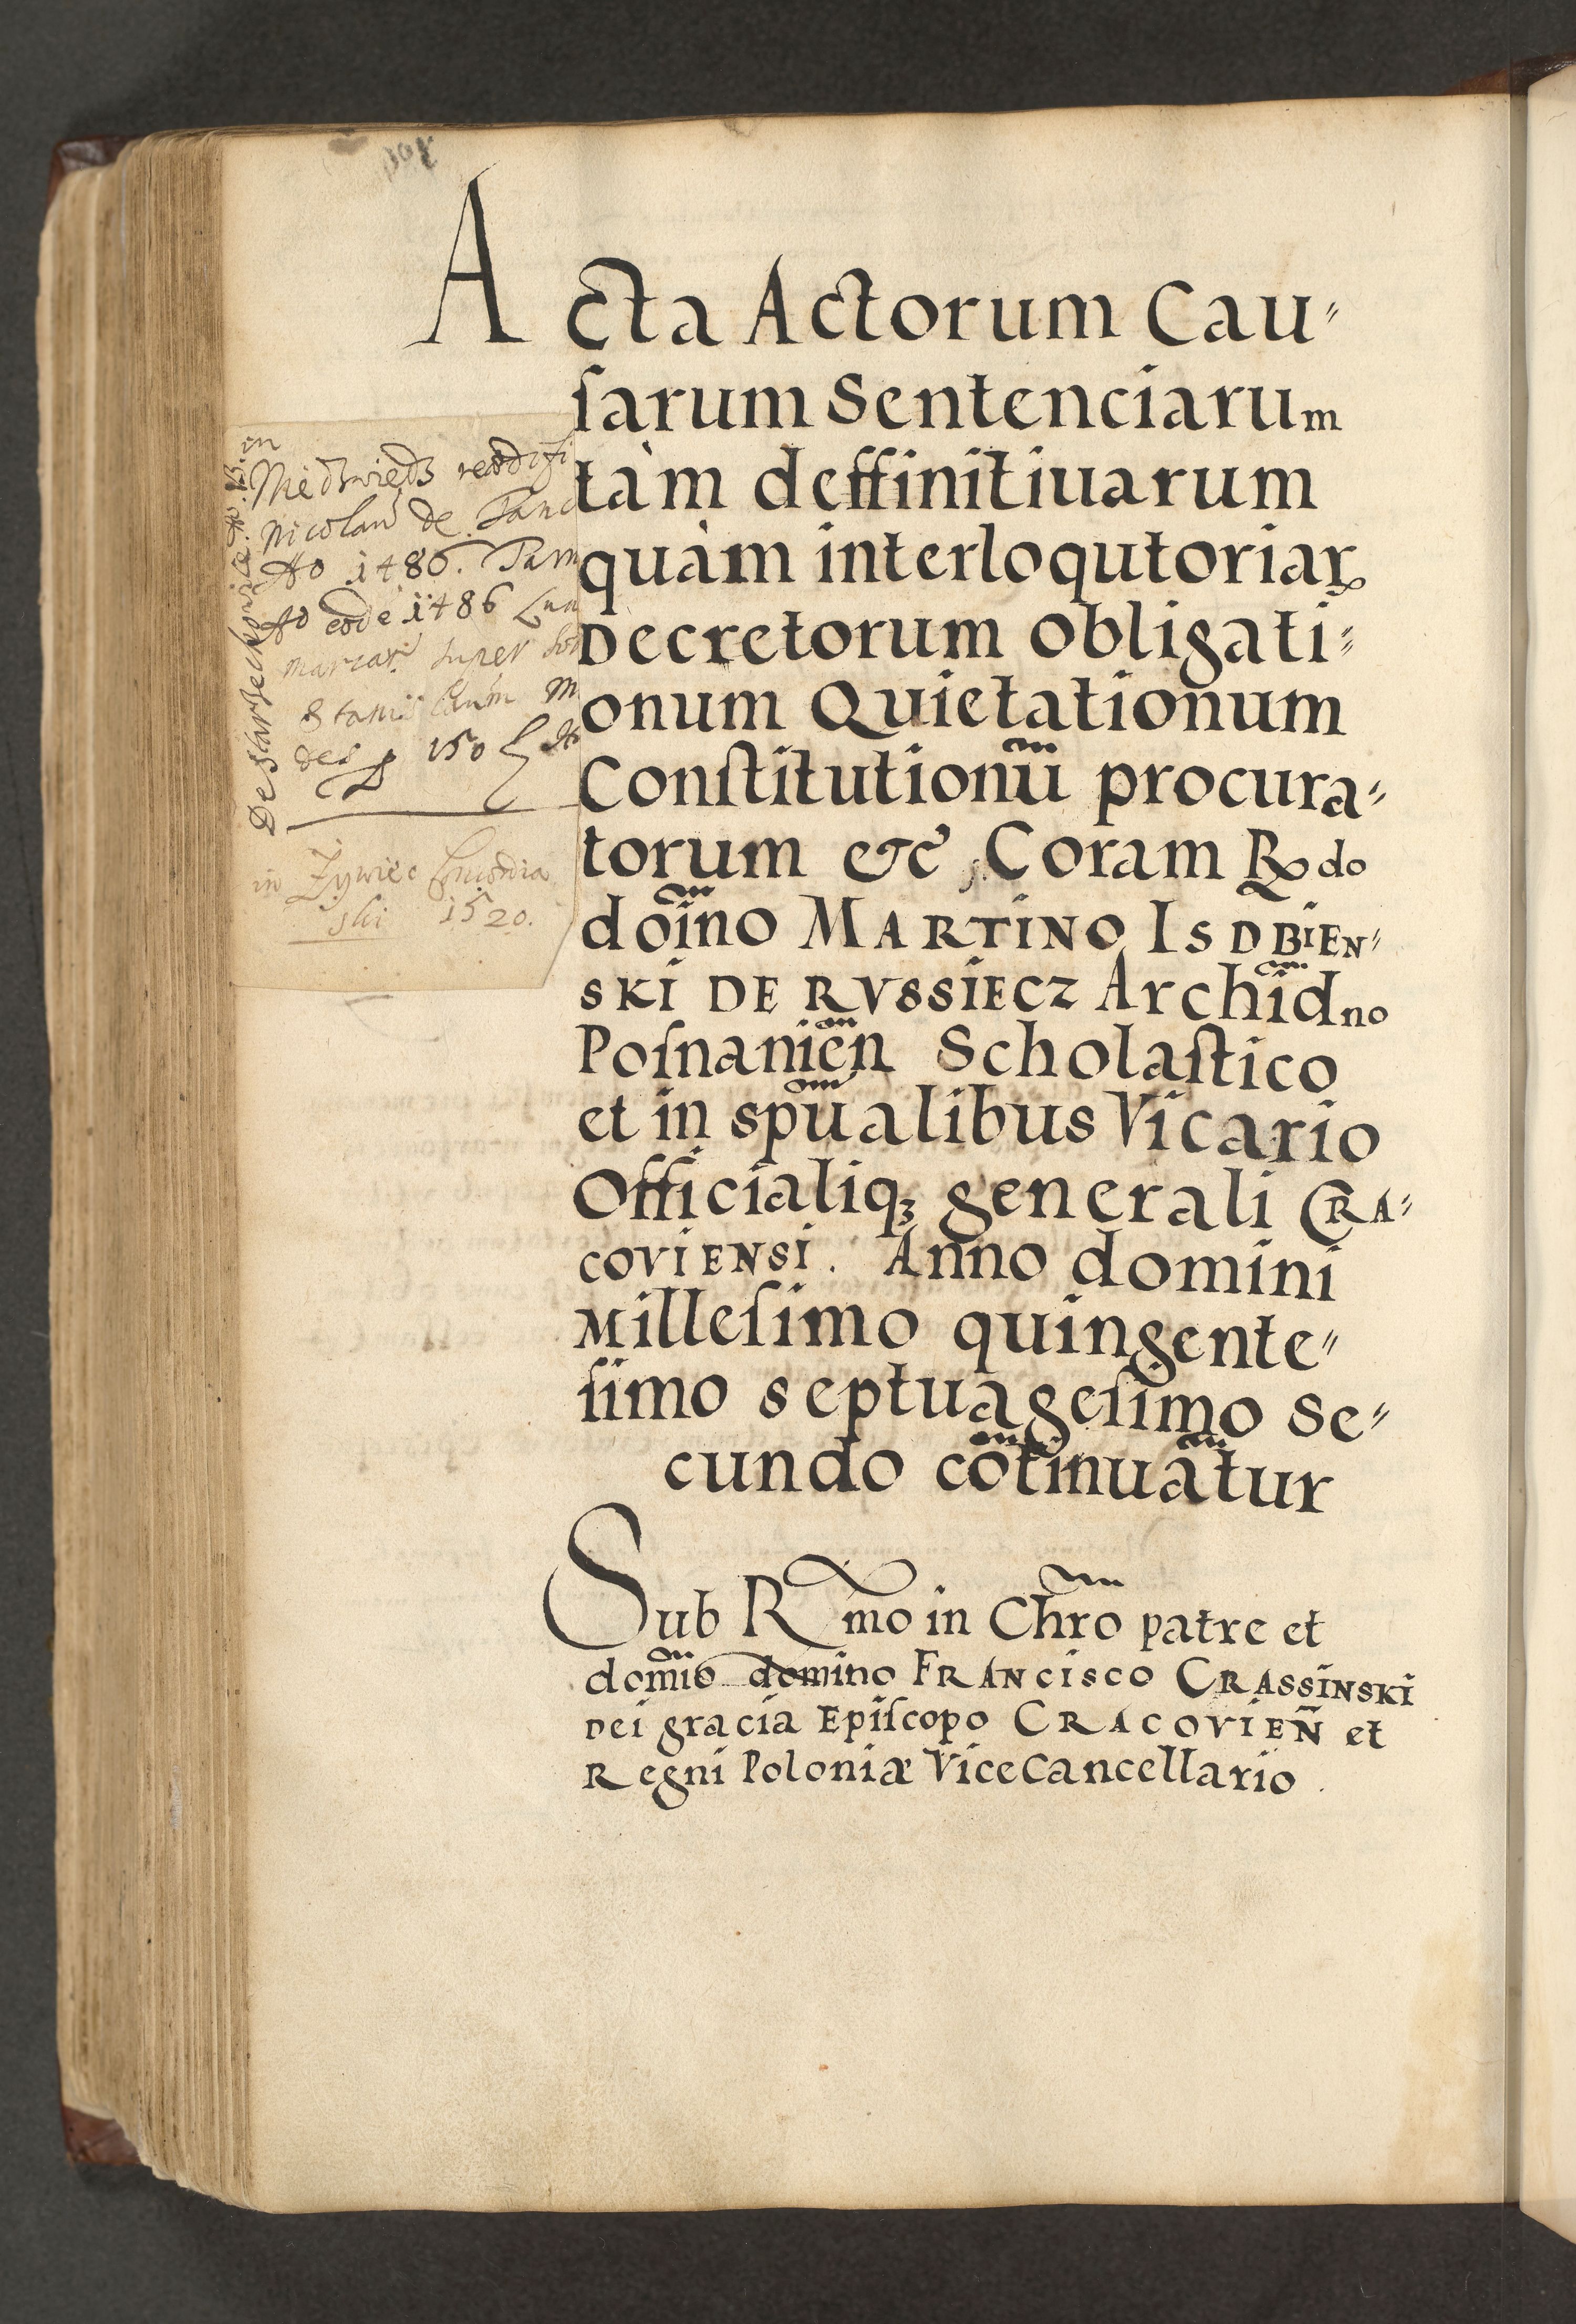 Acta Actorum Cau⸗
ſarum Sentenciarum
tàm deffinitiuarum
quàm interloqutoriaꝝ
Decretorum Obligati⸗
onum Quietationum
Conſtitutionũ procura⸗
torum etc̃ Coram Rdo
doĩno MARTINO ISDBIEN⸗
SKI DE RVSSIECZ Archid̃no
Poſnanieñ Scholaſtico
et in spũalibus Vicario
Officialiqꝫ generali CRA⸗
COVIENSI. Anno domini
Milleſimo quingente⸗
ſimo septuageſimo Se⸗
cundo cõtinuãtur
Sub Rmo in Chr̃o patre et
dom̃io domino FRANCISCO CRASSINSKI
Dei gracia Epiſcopo CRACOVIEÑ et
Regni Poloniæ ViceCancellario.
Nicolaū de
Ao 1486.
Ao eodē 1486
marcarū super
des 150
in Zywiec
1520.